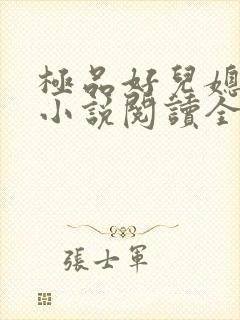 極品好兒媳
小說閱讀全
張士軍